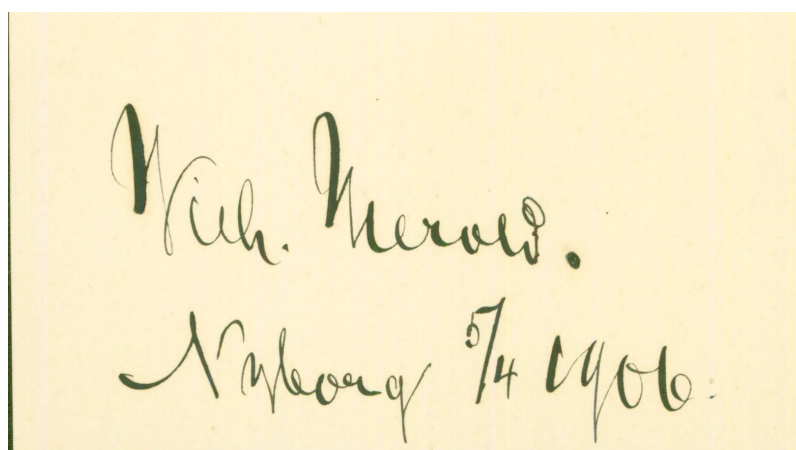 Vilh. Merow.
Nyborg 5/4 1906.